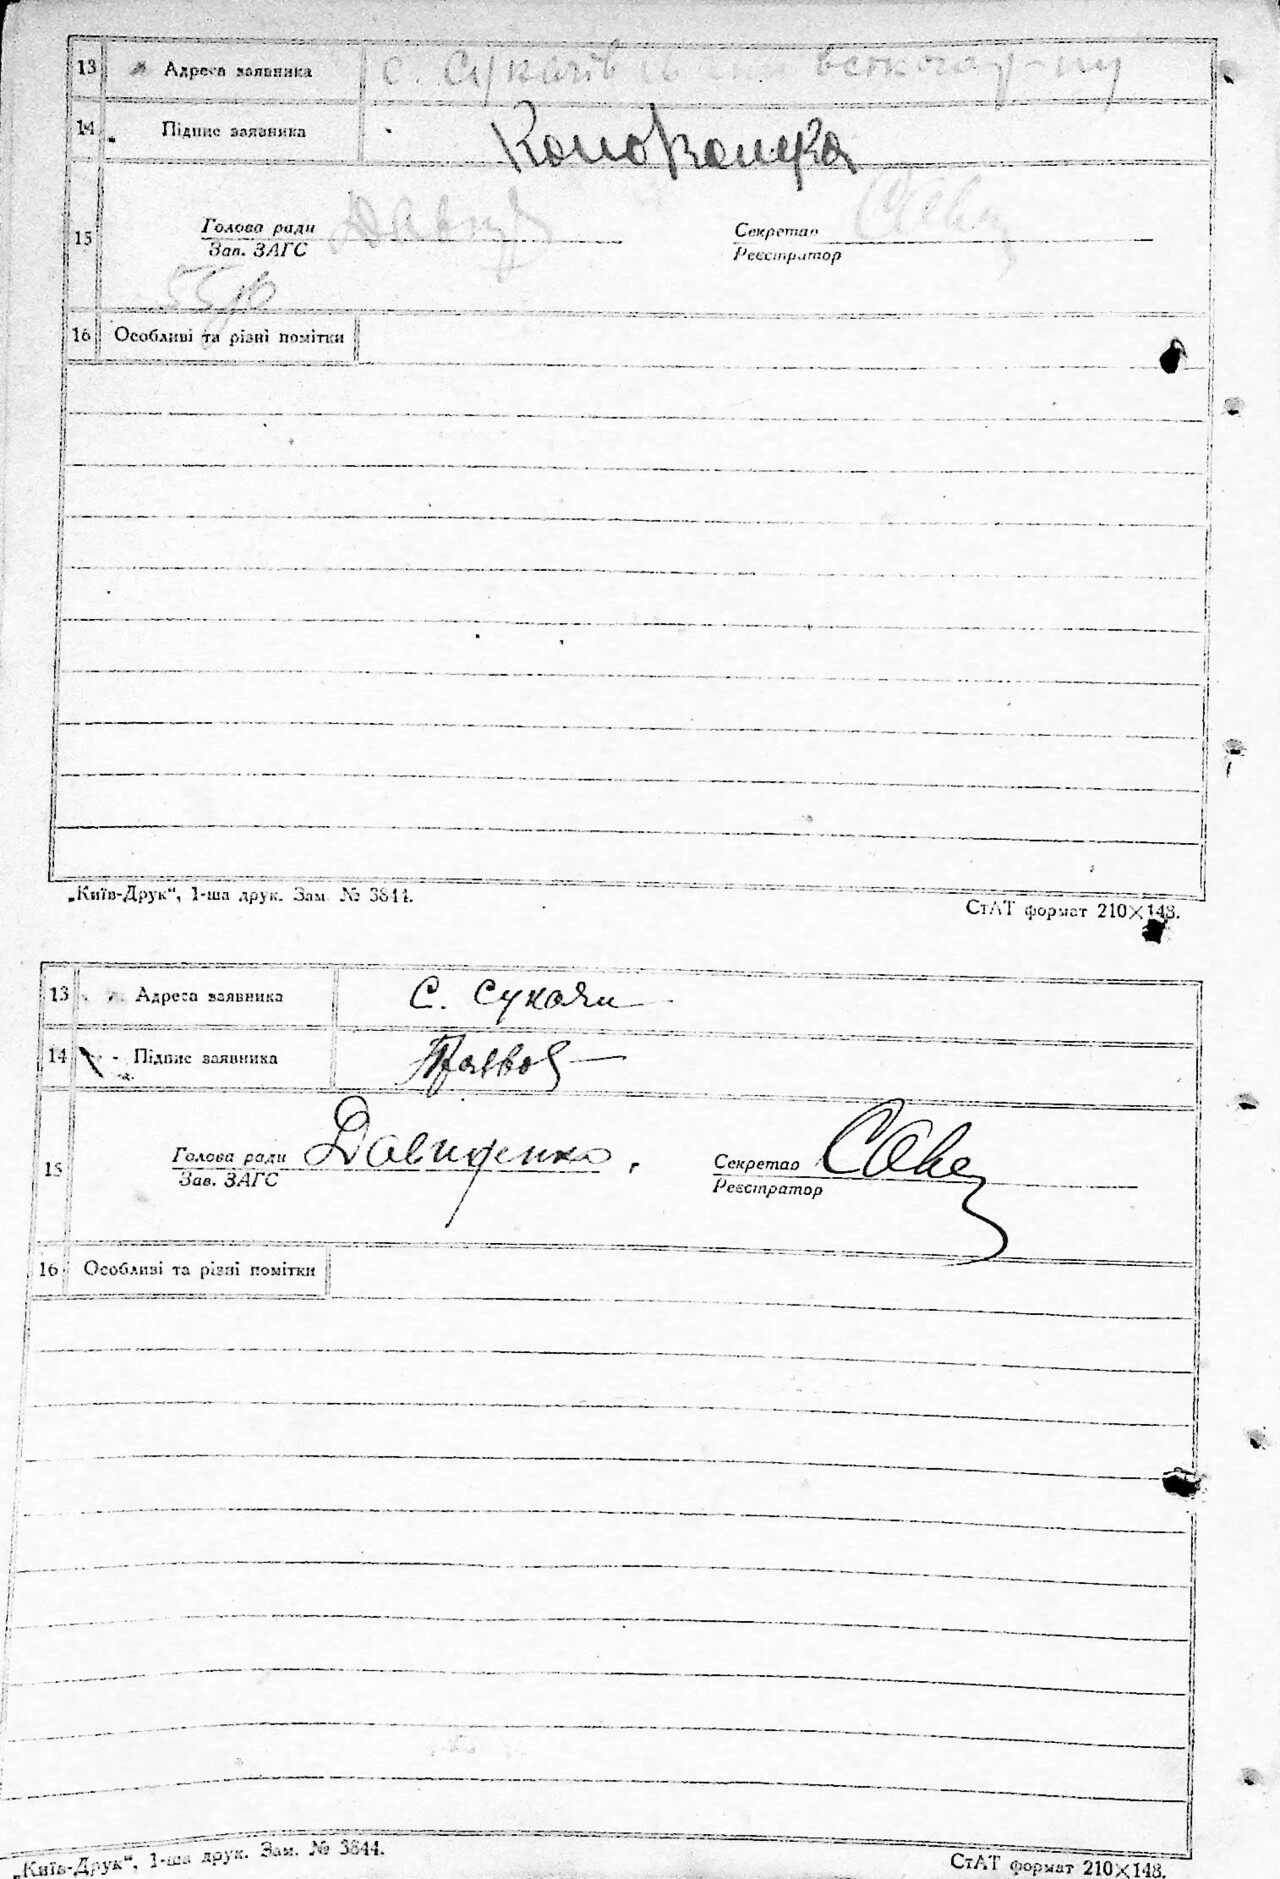 13 Адреса заявника с. Сукачів Іванківського р-ну
14 Підпис заявника
15 Голова ради Секретар
Зав. ЗАГС Реєстратор
16 Особливі та різні помітки
„Київ-Друк“, 1-ша друк. Зам. № 3844. СтАТ формат 210×148.
13 Адреса заявника с. Сукачи
14 Підпис заявника
15 Голова ради Давиденко Секретар
Зав. ЗАГС Реєстратор
16 Особливі та різні помітки
„Київ-Друк“, 1-ша друк. Зам. № 3844. СтАТ формат 210×148.